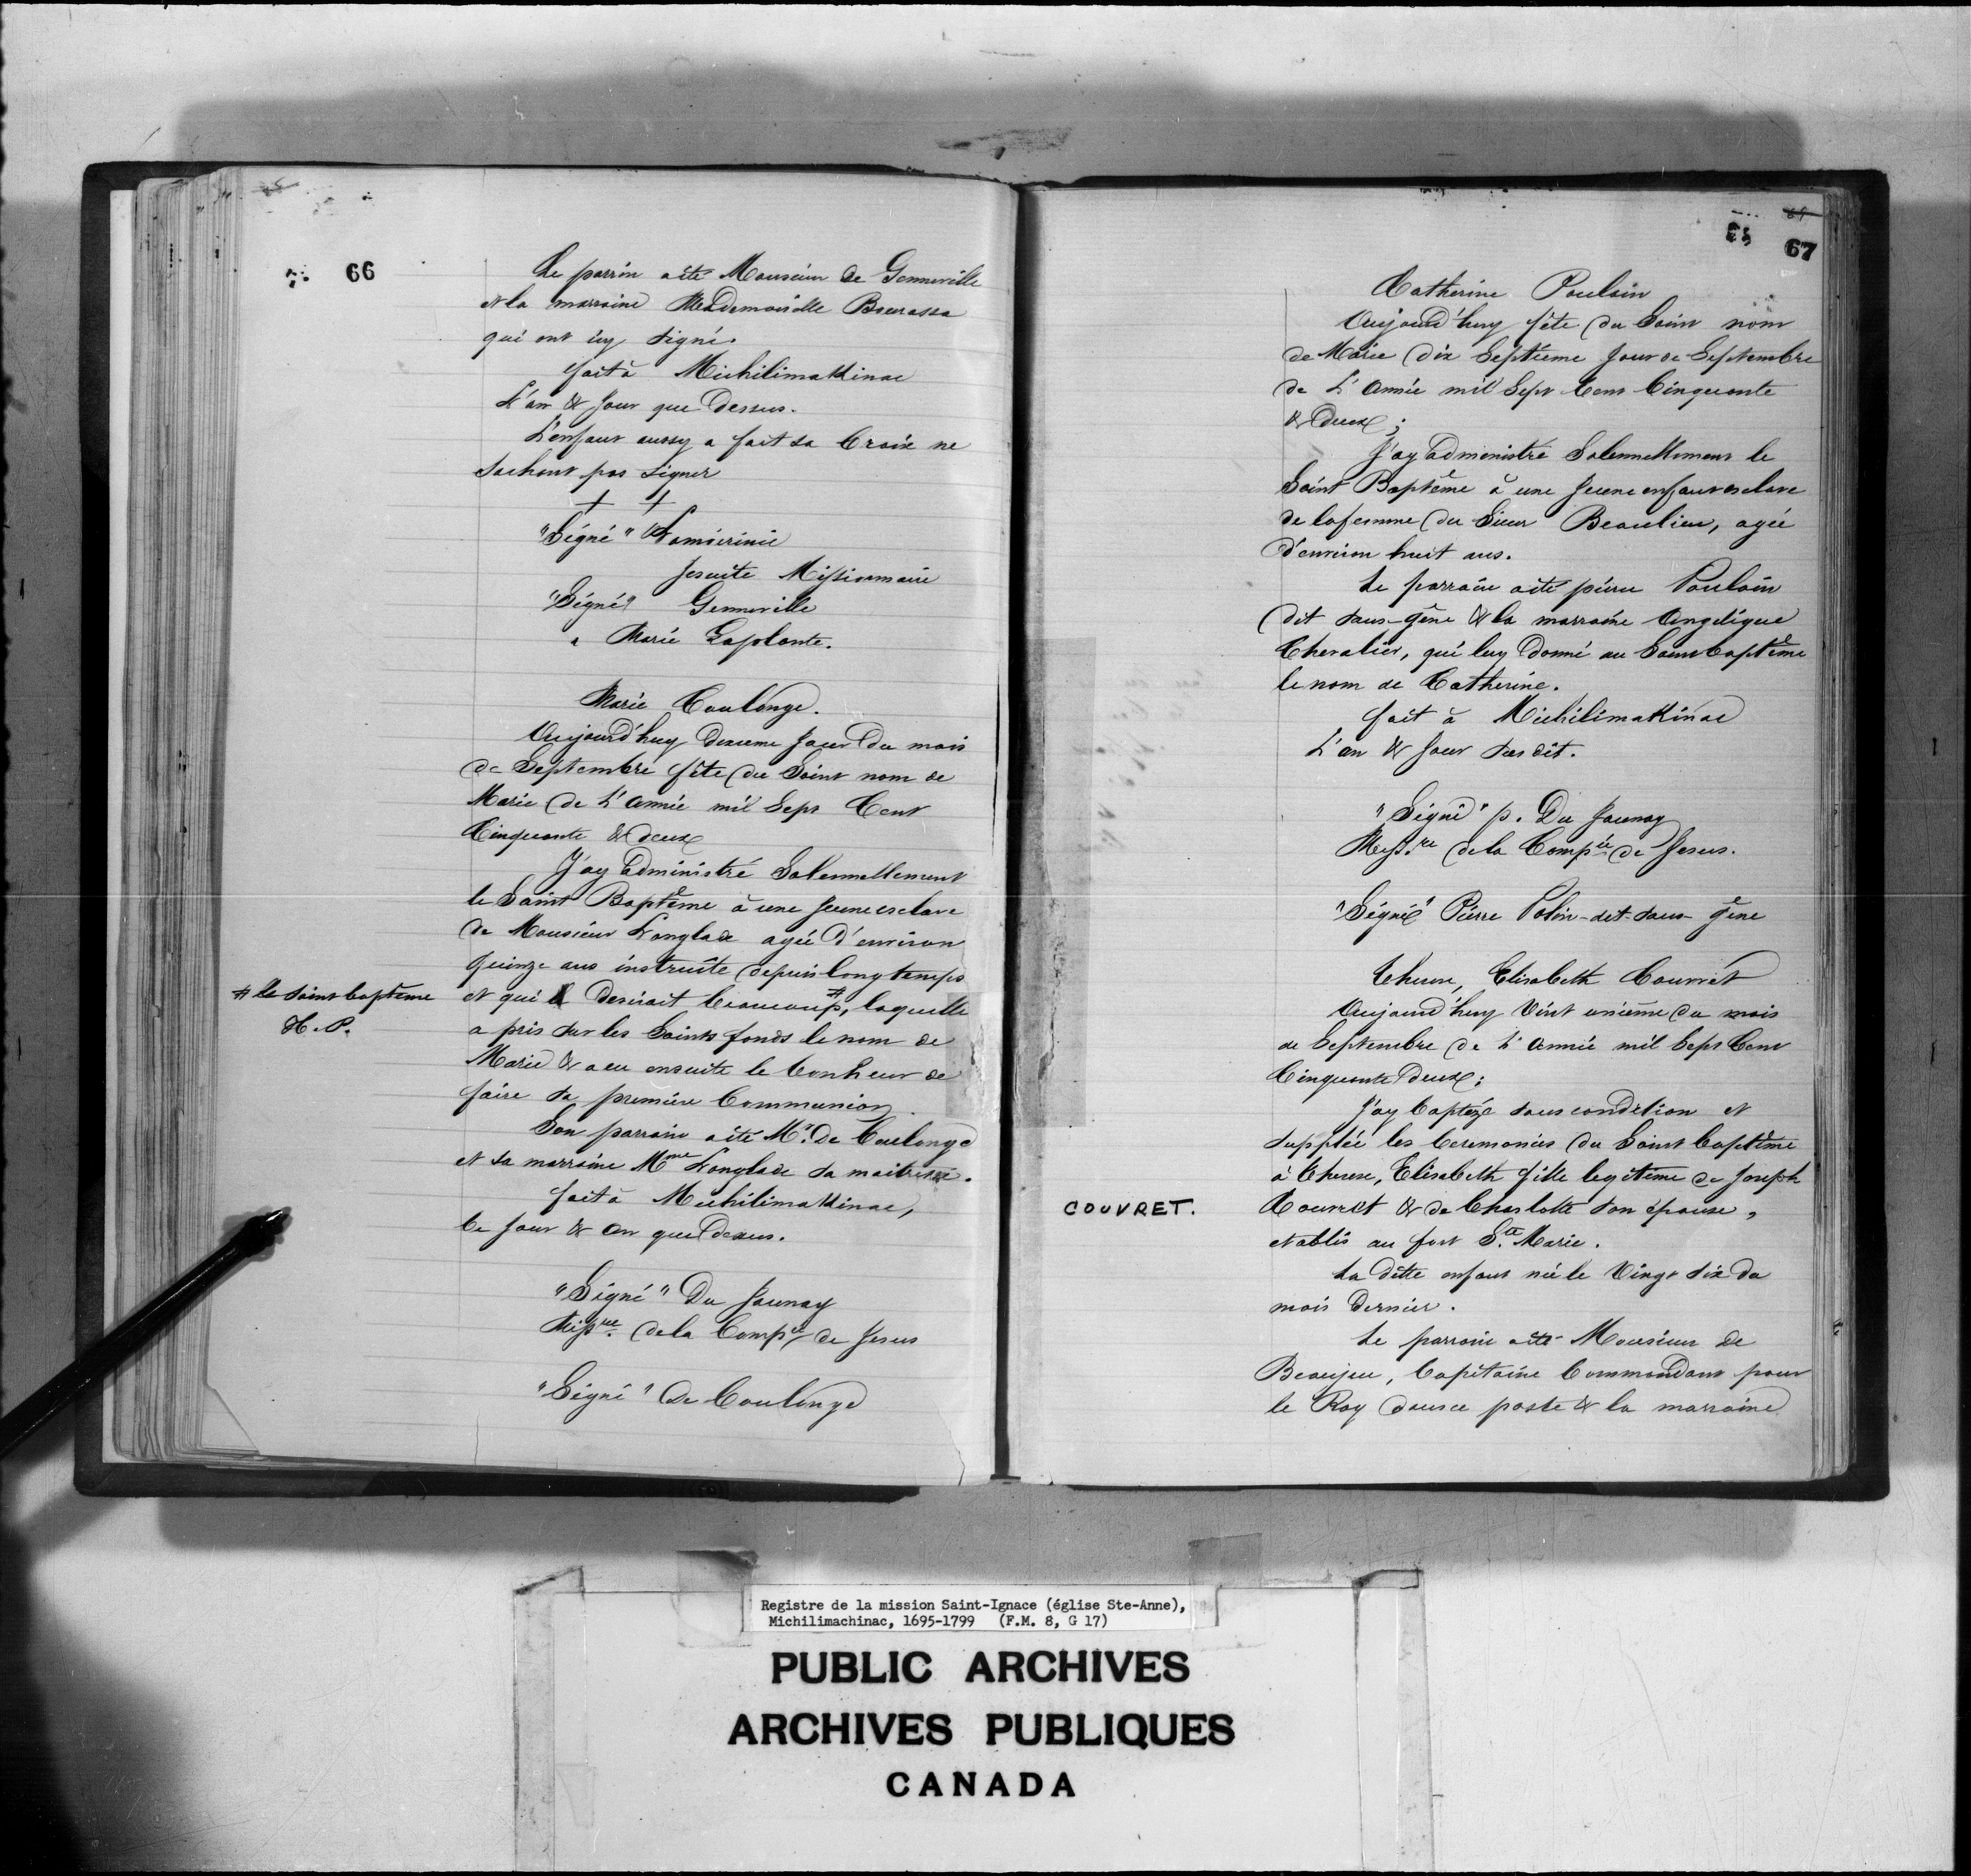 66
Le parrin aété Monsieur de Genneville
et la marraine Mademoiselle Bourassa
qui ont icy signé.
fait à Michilimakinac
L'an & jour que Dessus.
L'enfant aussy a fait sa Croix ne
sachant pas signer
+ +
"Signé" Lamoirinie
Jesuite Missionnaire
"Signé" Genneville
" Marie Laplante.
Marie Coulonge.
Aujourd'huy jour du mois
de Septembre fête du Saint nom de
Marie de L'Année mil Sept Cent
Cinquante & deux
J'ay administré Solennellement
le Saint Baptême à une jeune esclave
de Monsieur Langlade agée d'environ
quinze ans instruite depuis longtemps
et qui desirait beaucoup #, laquelle
# le saint baptême
H. P.
a pris sur les Saints fonds le nom de
Marie & a eu ensuite le bonheur de
faire sa première Communion.
Son parrain aété Mr. De Coulonge
et sa marraine Mme Langlade sa maitresse.
fait à Michilimakinac,
le jour & an que dessus.
"Signé" Du Jaunay
Missre. de la Compie de Jesus
"Signé" De Coulonge
67
Catherine Poulain
Aujourd'huy fête du Saint nom
de Marie dix Septième jour de Septembre
de L'Année mil Sept Cent Cinquante
& deux;
J'ay administré Solennellement le
Saint Baptême à une jeune enfant esclave
de la femme du Sieur Beaulieu, agée
d'environ huit ans.
Le parrain aété pierre Poulain
dit sans-gêne & la marraine Angelique
Chevalier, qui luy donné au Saint baptême
le nom de Catherine.
fait à Michilimakinac
L'an & jour susdit.
"Signé" p. Du Jaunay
Miss.re de la Compie de Jesus.
"Signé" Pierre Polin-dit-sans-gêne
Therese, Elisabeth Couvret
Aujourd'huy Vint unième du mois
de Septembre de L'Année mil Sept Cent
Cinquante deux;
J'ay baptizé sous condition et
supplée les Ceremonies du Saint baptême
à Therese, Elisabeth fille legitime de Joseph
COUVRET.
Couvret & de Charlotte son épouse,
etablis au fort Ste. Marie.
La ditte enfant née le Vingt six du
mois dernier.
Le parrain aété Monsieur de
Beaujeu, Capitaine Commandant pour
le Roy dans ce poste & la marraine
Registre de la mission Saint-Ignace (église Ste-Anne),
Michilimachinac, 1695-1799 (F.M. 8, G 17)
PUBLIC ARCHIVES
ARCHIVES PUBLIQUES
CANADA